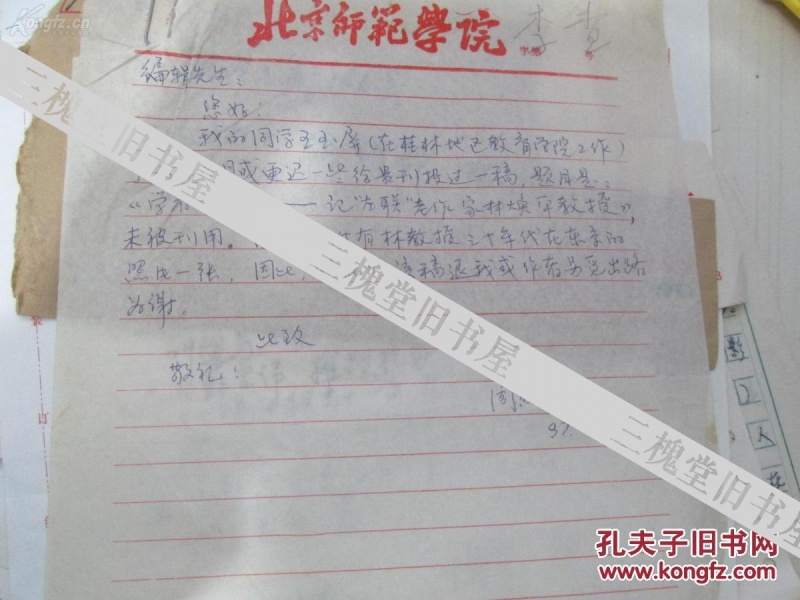 Kongfz.cn
北京师范学院
字第 号
编辑先生:
您好.
我的同学王玉屏(在桂林地区教育学院工作)
月或更迟一些给贵刊投过一稿,题目是:
《学 —— 记"左联"老作家林焕平教授》,
未被刊用。 有林教授三十年代在东京的
照片一张,因此, 稿退我或作者另觅出路
为谢。
此致
敬礼!
周
87.
三槐堂旧书屋
三槐堂旧书屋
三槐堂旧书屋
订
工
人
孔夫子旧书网
KONGFZ.COM